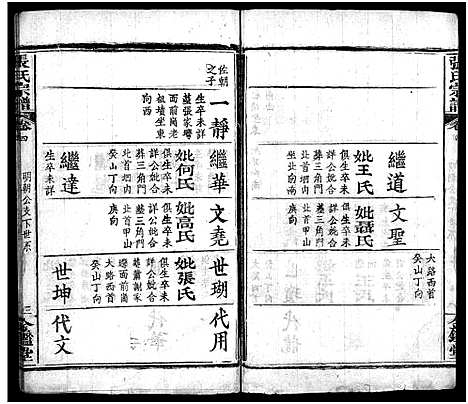 張氏宗譜
卷四
繼道
妣王氏
俱生卒未
詳公妣合
葬三角門
北首坦內
癸山丁向
文聖
妣聶氏
俱生卒未
詳公妣合
墓三角門
北首甲山
庚向
大路西首
癸山丁向
金鑑堂
張氏宗譜
卷四
明朝公支下世系
三
金鑑堂
佐朝
之子
一靜
生卒未詳
墓張家灣
面前岡老
祖墳坐東
向西
繼華
妣何氏
俱生卒未
詳公妣合
葬三角門
北首坦內
癸山丁向
文堯
妣高氏
俱生卒未
詳公妣合
墓三角門
北首甲山
庚向
世瑚
妣張氏
俱生卒未
詳公妣合
墓蕭謝家
邊面前崗
大路西首
癸山丁向
代用
繼達
生卒未詳
世坤
代文